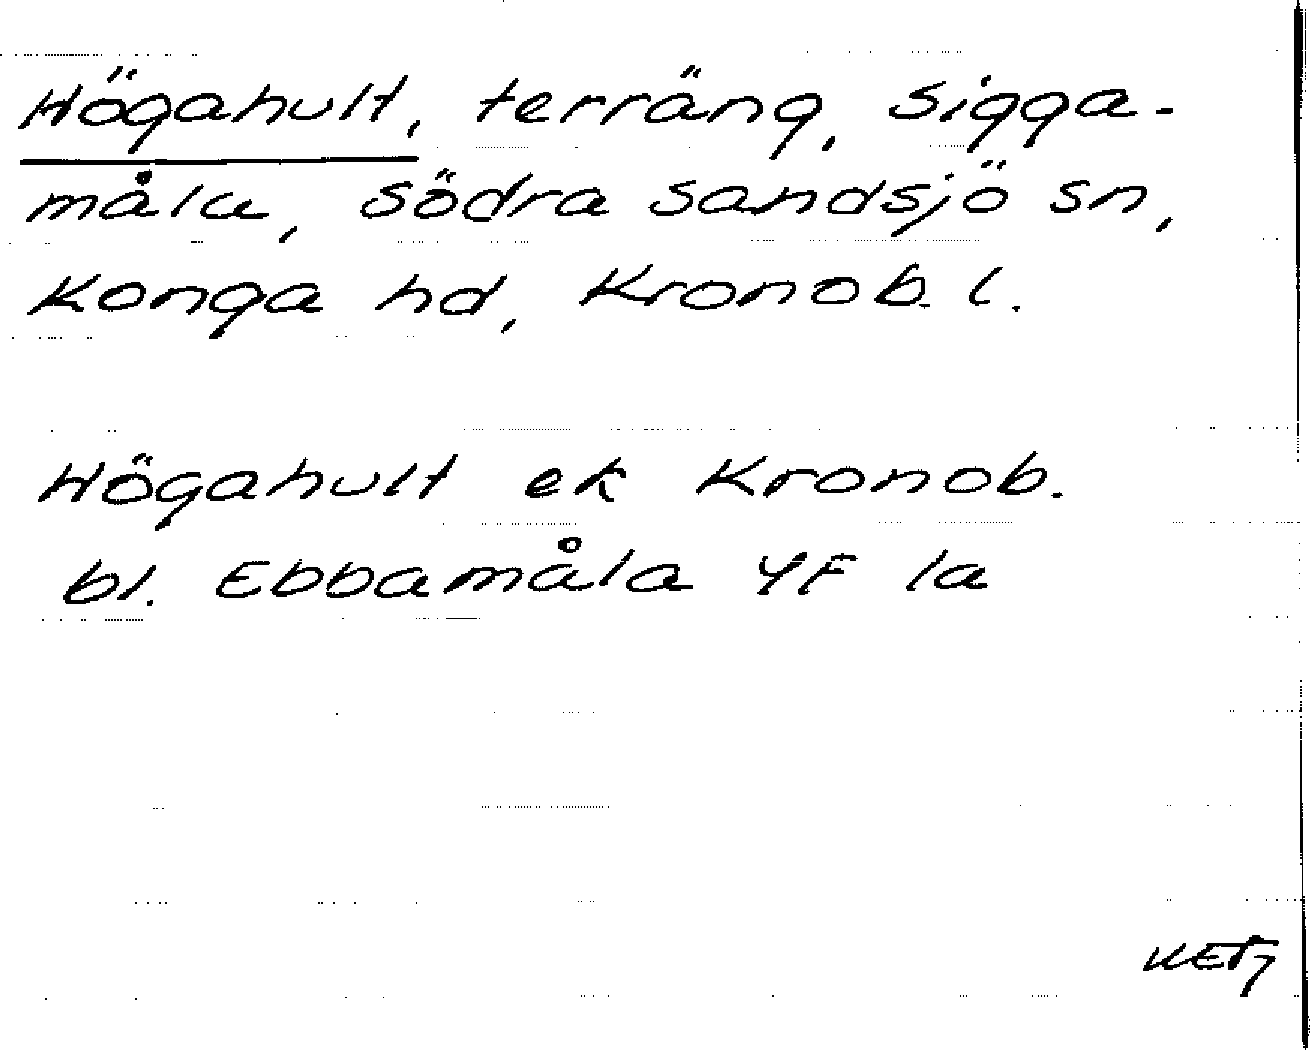 Högahult, terräng, Sigga-
måla, Södra Sandsjö sn,
Konga hd, Kronob. l.
Högahult ek Kronob.
bl. Ebbamåla 4F 1a